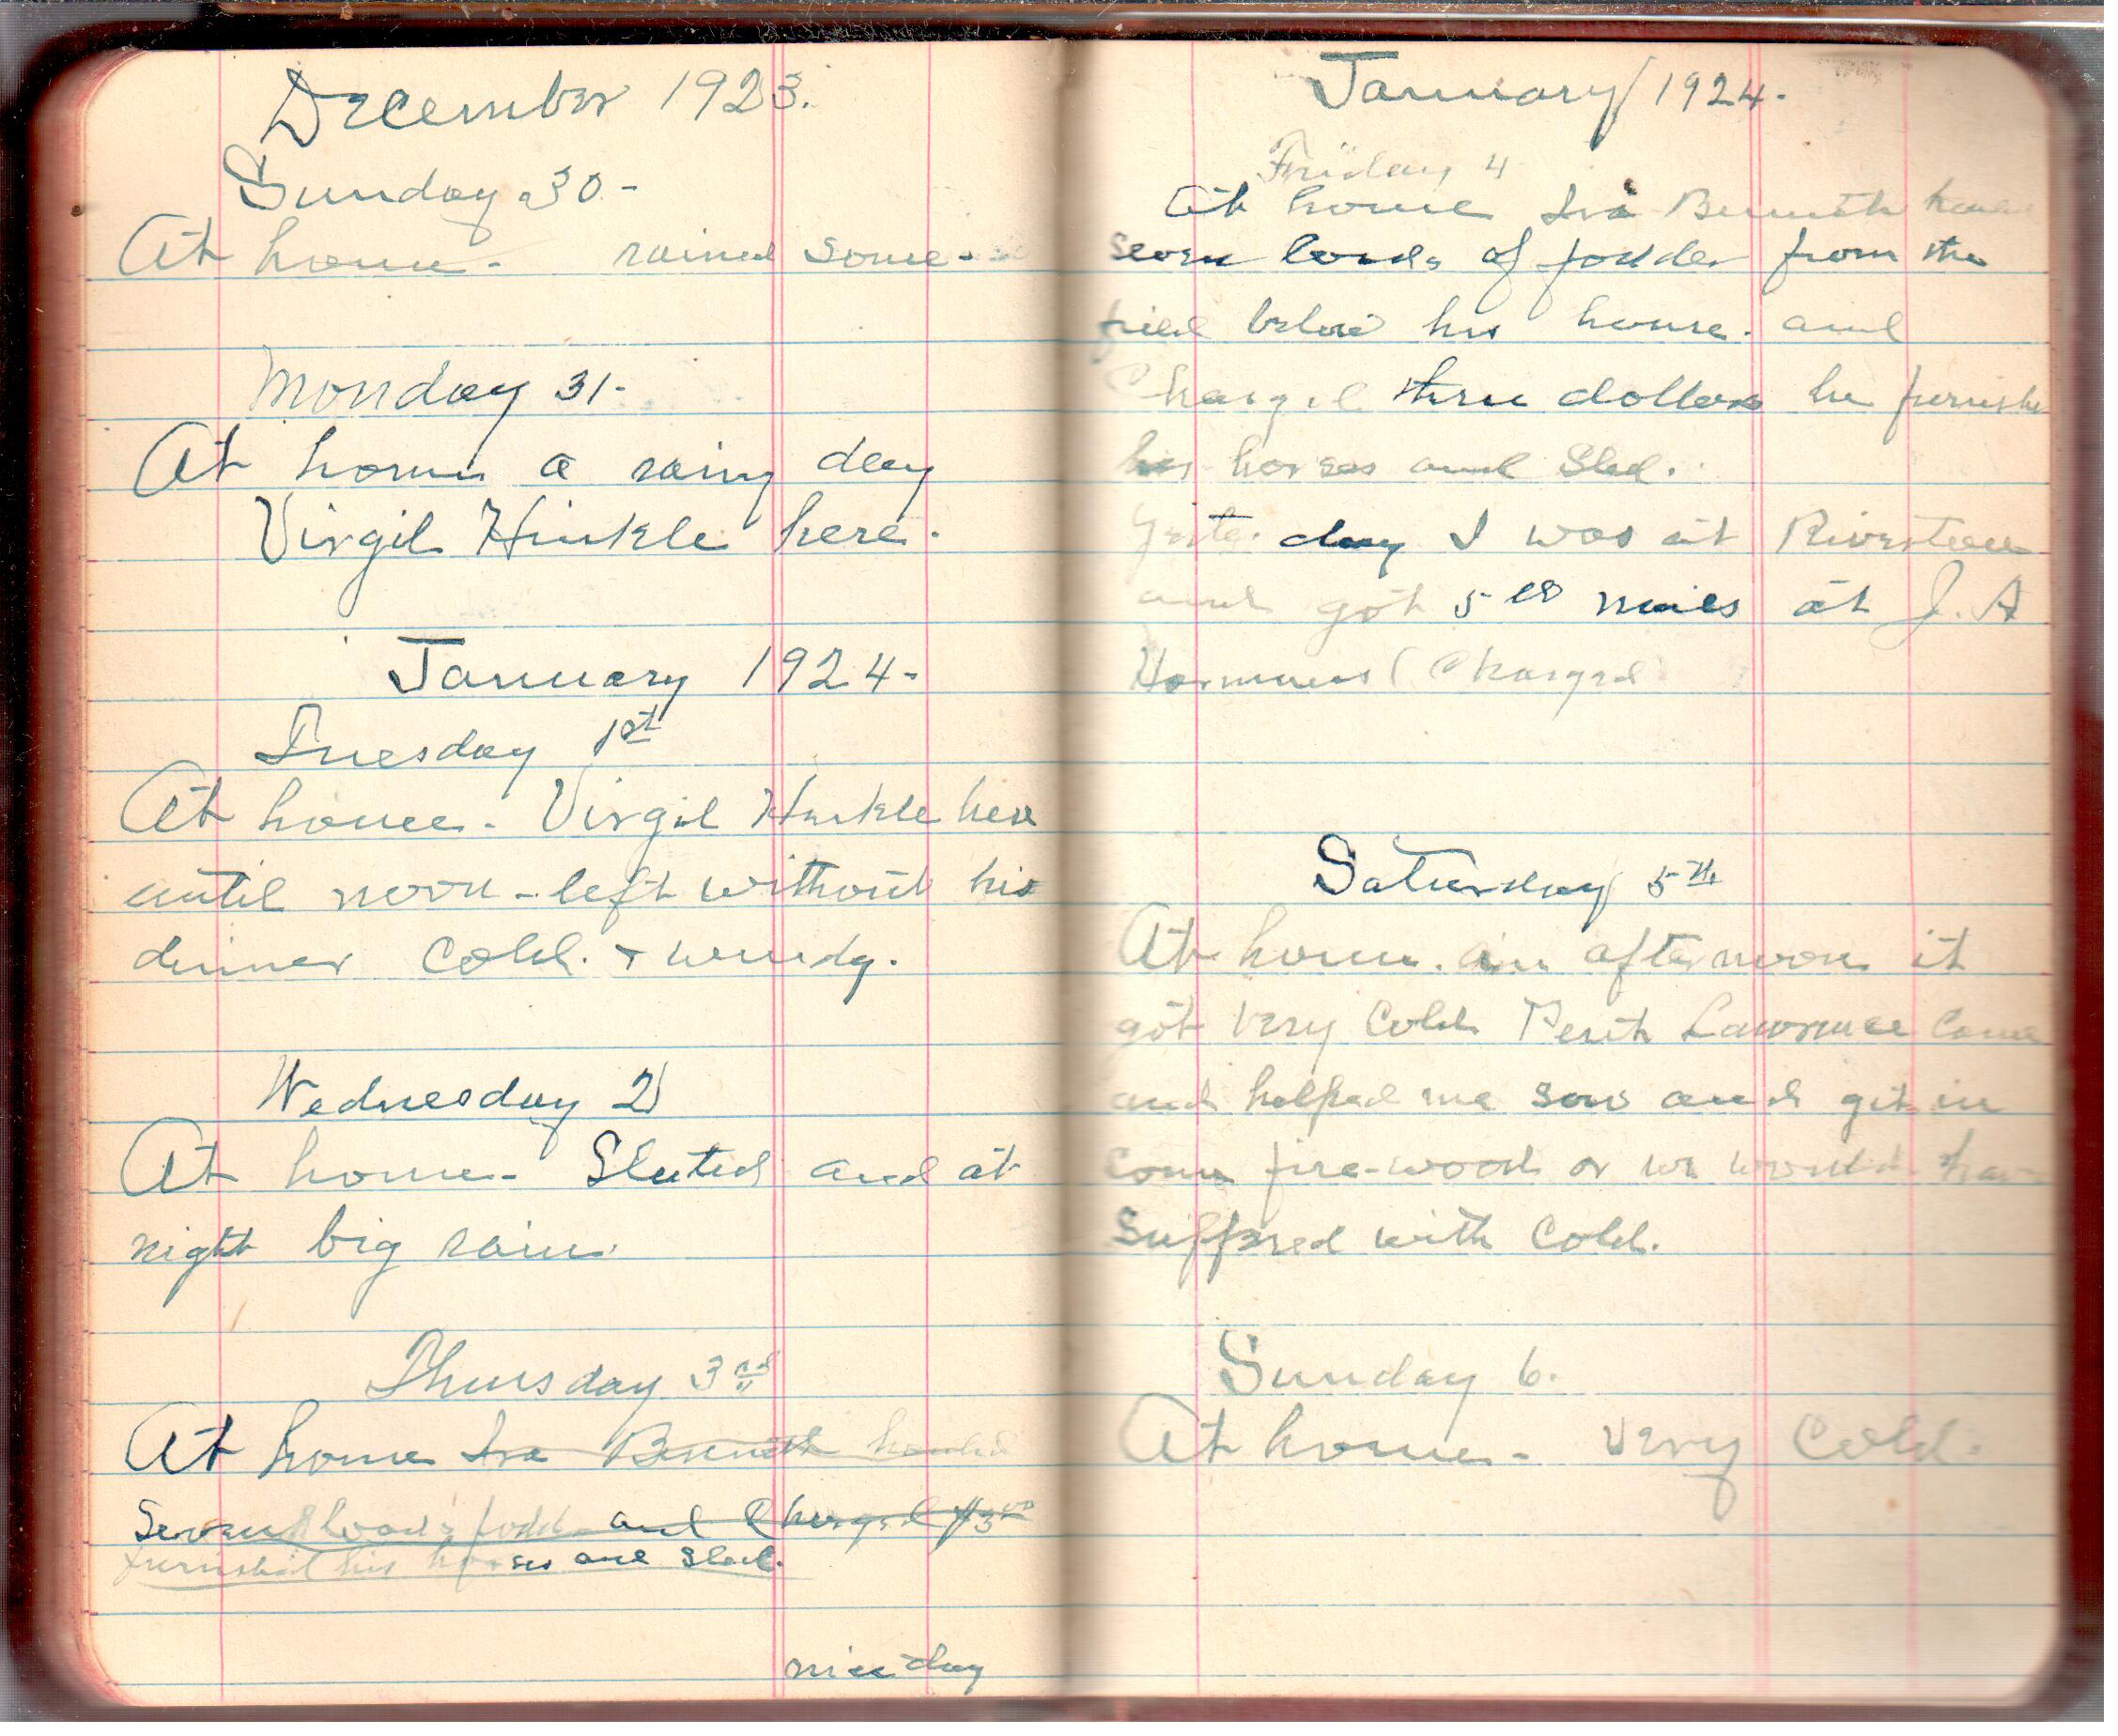 December 1923.
Sunday 30-
At home- rained some-
Monday 31-
At home a rainy day
Virgil Hinkle here.
January 1924-
Tuesday 1st
At home- Virgil Hinkle here
until noon-left without his
dinner Cold. + windy.
Wednesday 2
At home- Sleeted and at
night big rain.
Thursday 3rd
At home Ira Bennett hauled
Seven loads fodder and Charged $3.00
furnished his horses and Sled.
nice day
January 1924-
Friday 4
At home Ira Bennett hauled
seven loads of fodder from the
field below his house. and
Charged three dollars he furnished
his horses and Sled.
day I was at Riverton
and got 5 lb nails at J. A
Harmans (Charged
Saturday 5th
At home. in afternoon it
got very Cold Lawrence Came
and helped me saw and git in
some fire-wood or we would have
Suffered with Cold.
Sunday 6.
At home- Very Cold.